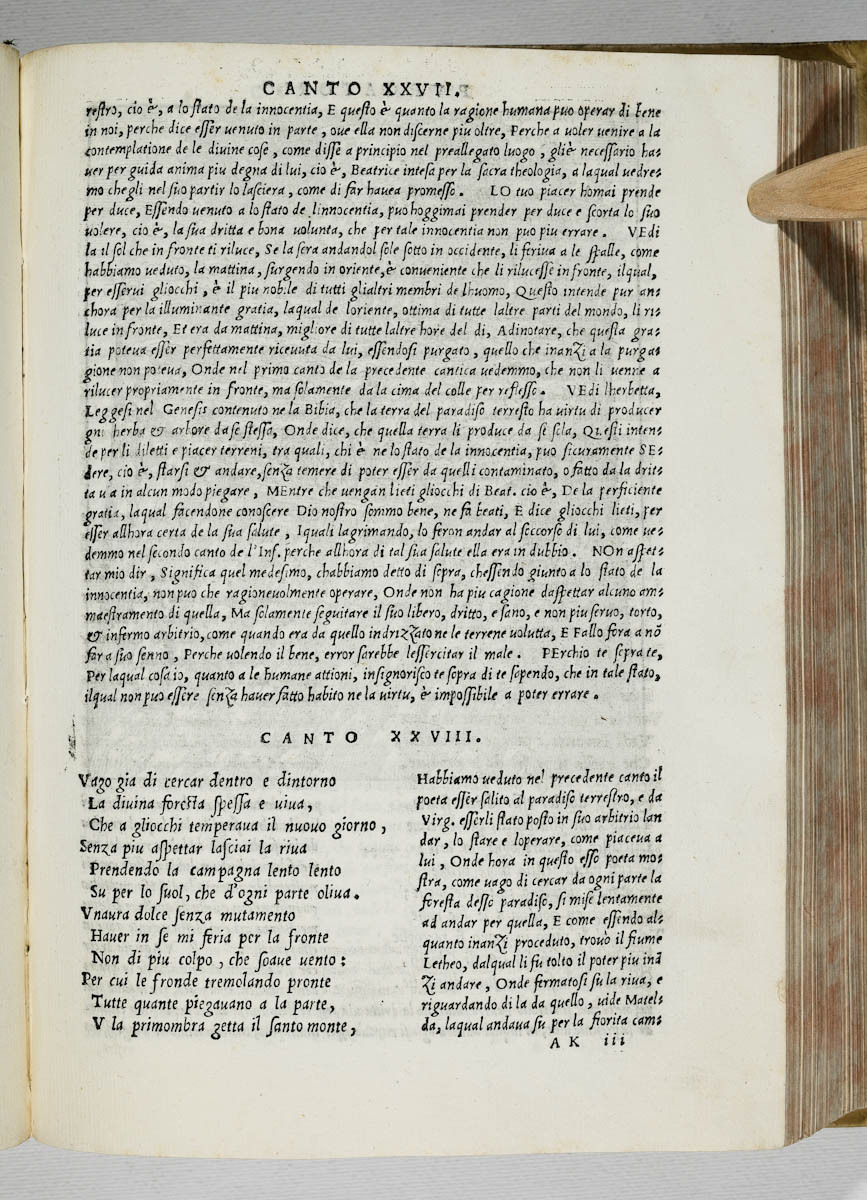 CANTO XXVII.
restro, cio è, a lo stato de la innocentia, E questo è quanto la ragione humana puo operar di bene
in noi, perche dice esser venuto in parte, oue ella non discerne piu oltre, Perche a uoler uenire a la
contemplatione de le diuine cose, come disse a principio nel preallegato luogo, gliè necessario ha=
uer per guida anima piu degna di lui, cio è, Beatrice intesa per la sacra theologia, a laqual uedre=
mo chegli nel suo partir lo lasciera, come di far hauea promesso. LO tuo piacer homai prende
per duce, Essendo uenuto a lo stato de linnocentia, puo hoggimai prender per duce e scorta lo suo
uolere, cio è, la sua dritta e bona uolunta, che per tale innocentia non puo piu errare. VEdi
la il sol che in fronte ti riluce, Se la sera andandol sole sotto in occidente, li feriua a le spalle, come
habbiamo ueduto, la mattina, surgendo in oriente, è conueniente che li rilucesse in fronte, ilqual,
per esserui gliocchi, è il piu nobile di tutti glialtri membri de lhuomo, Questo intende pur an=
chora per la illuminante gratia, laqual de loriente, ottima di tutte laltre parti del mondo, li ri=
luce in fronte, Et era da mattina, migliore di tutte laltre hore del di, Adinotare, che questa gra=
tia poteua esser perfettamente riceuuta da lui, essendosi purgato, quello che inanzi a la purga=
gione non poteua, Onde nel primo canto de la precedente cantica uedemmo, che non li uenne a
rilucer propriamente in fronte, ma solamente da la cima del colle per reflesso. VEdi lherbetta,
Leggesi nel Genesis contenuto ne la Bibia, che la terra del paradiso terresto ha uirtu di producer
gni herba & arbore da se stessa, Onde dice, che quella terra li produce da se sola, Questi inten=
de per li diletti e piacer terreni, tra quali, chi è ne lo stato de la innocentia, puo sicuramente SE=
dere, cio è, starsi & andare, senza temere di poter esser da quelli contaminato, o fatto da la drit=
ta uia in alcun modo piegare, MEntre che uengan lieti gliocchi di Beat. cio è, De la perficiente
gratia, laqual facendone conoscere Dio nostro sommo bene, ne fa beati, E dice gliocchi lieti, per
esser allhora certa de la sua salute, Iquali lagrimando, lo feron andar al soccorso di lui, come ue=
demmo nel secondo canto de l'Inf. perche allhora di tal sua salute ella era in dubbio. NOn aspet=
tar mio dir, Significa quel medesimo, chabbiamo detto di sopra, chessendo giunto a lo stato de la
innocentia, non puo che ragioneuolmente operare, Onde non ha piu cagione daspettar alcuno am=
maestramento di quella, Ma solamente seguitare il suo libero, dritto, e sano, e non piu seruo, torto,
& infermo arbitrio, come quando era da quello indrizzato ne le terrene uolutta, E Fallo fora a nõ
far a suo senno, Perche uolendo il bene, error sarebbe lessercitar il male. PErchio te sopra te,
Per laqual cosa io, quanto a le humane attioni, insignorisco te sopra di te sapendo, che in tale stato,
ilqual non puo essere senza hauer fatto habito ne la uirtu, è impossibile a poter errare.
CANTO XXVIII.
Vago gia di cercar dentro e dintorno
La diuina foresta spessa e uiua,
Che a gliocchi temperaua il nuouo giorno,
Senza piu aspettar lasciai la riua
Prendendo la campagna lento lento
Su per lo suol, che d'ogni parte oliua.
Vnaura dolce senza mutamento
Hauer in se mi feria per la fronte
Non di piu colpo, che soaue uento:
Per cui le fronde tremolando pronte
Tutte quante piegauano a la parte,
V la primombra getta il santo monte,
Habbiamo ueduto nel precedente canto il
poeta esser salito al paradiso terrestro, e da
Virg. esserli stato posto in suo arbitrio lan
dar, lo stare e loperare, come piaceua a
lui, Onde hora in questo esso poeta mo=
stra, come uago di cercar da ogni parte la
foresta desso paradiso, si mise lentamente
ad andar per quella, E come essendo al=
quanto inanzi proceduto, trouò il fiume
Letheo, dalqual li fu tolto il poter piu inã
zi andare, Onde fermatosi su la riua, e
riguardando di la da quello, uide Matel=
da, laqual andaua su per la fiorita cam=
AK iii